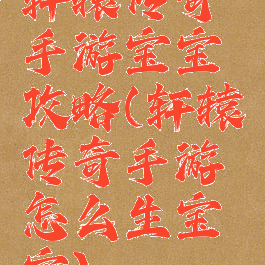 轩辕传奇
手游宝宝
攻略(轩辕
传奇手游
怎么生宝
宝)